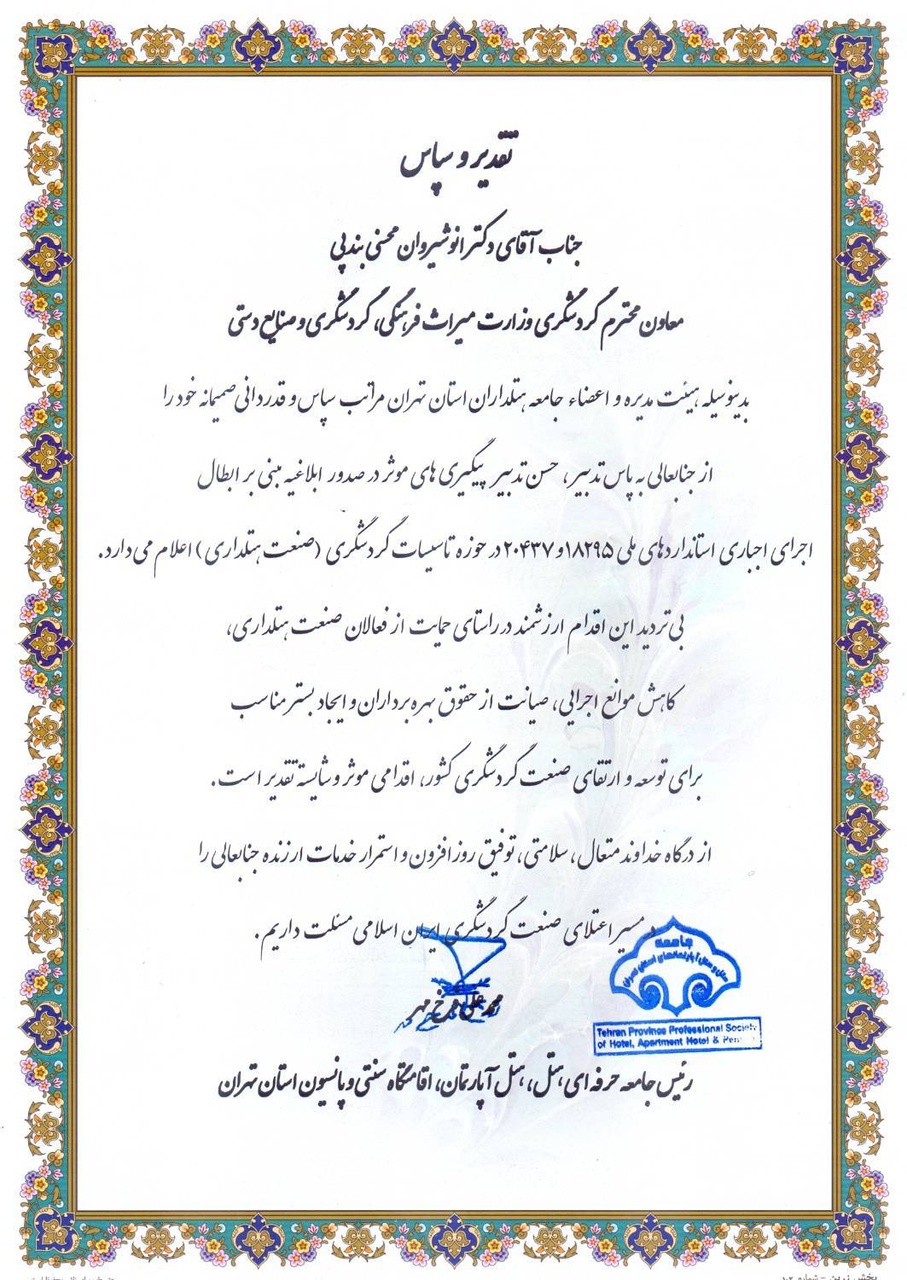 تقدیر و سپاس
جناب آقای دکتر انوشیروان محسنی بندپی
معاون محترم گردشگری وزارت میراث فرهنگی، گردشگری و صنایع دستی
بدینوسیله هیئت مدیره و اعضاء جامعه هتلداران استان تهران مراتب سپاس و قدردانی صمیمانه خود را
از جنابعالی به پاس تدبیر، حسن تدبیر پیگیری های موثر در صدور ابلاغیه مبنی بر ابطال
اجرای اجباری استانداردهای ملی ۱۸۲۹۵و۲۰۴۳۷ در حوزه تاسیسات گردشگری (صنعت هتلداری) اعلام می دارد.
بی تردید این اقدام ارزشمند در راستای حمایت از فعالان صنعت هتلداری،
کاهش موانع اجرایی، صیانت از حقوق بهره برداران و ایجاد بستر مناسب
برای توسعه و ارتقای صنعت گردشگری کشور، اقدامی موثر و شایسته تقدیر است.
از درگاه خداوند متعال، سلامتی، توفیق روزافزون و استمرار خدمات ارزنده جنابعالی را
در مسیر اعتلای صنعت گردشگری ایران اسلامی مسئلت داریم.
جامعه
هتل و هتل آپارتمانهای استان تهران
Tehran Province Professional Society
of Hotel, Apartment Hotel &
محمد علی فرخ مهر
رئیس جامعه حرفه ای هتل، هتل آپارتمان، اقامتگاه سنتی و پانسیون استان تهران